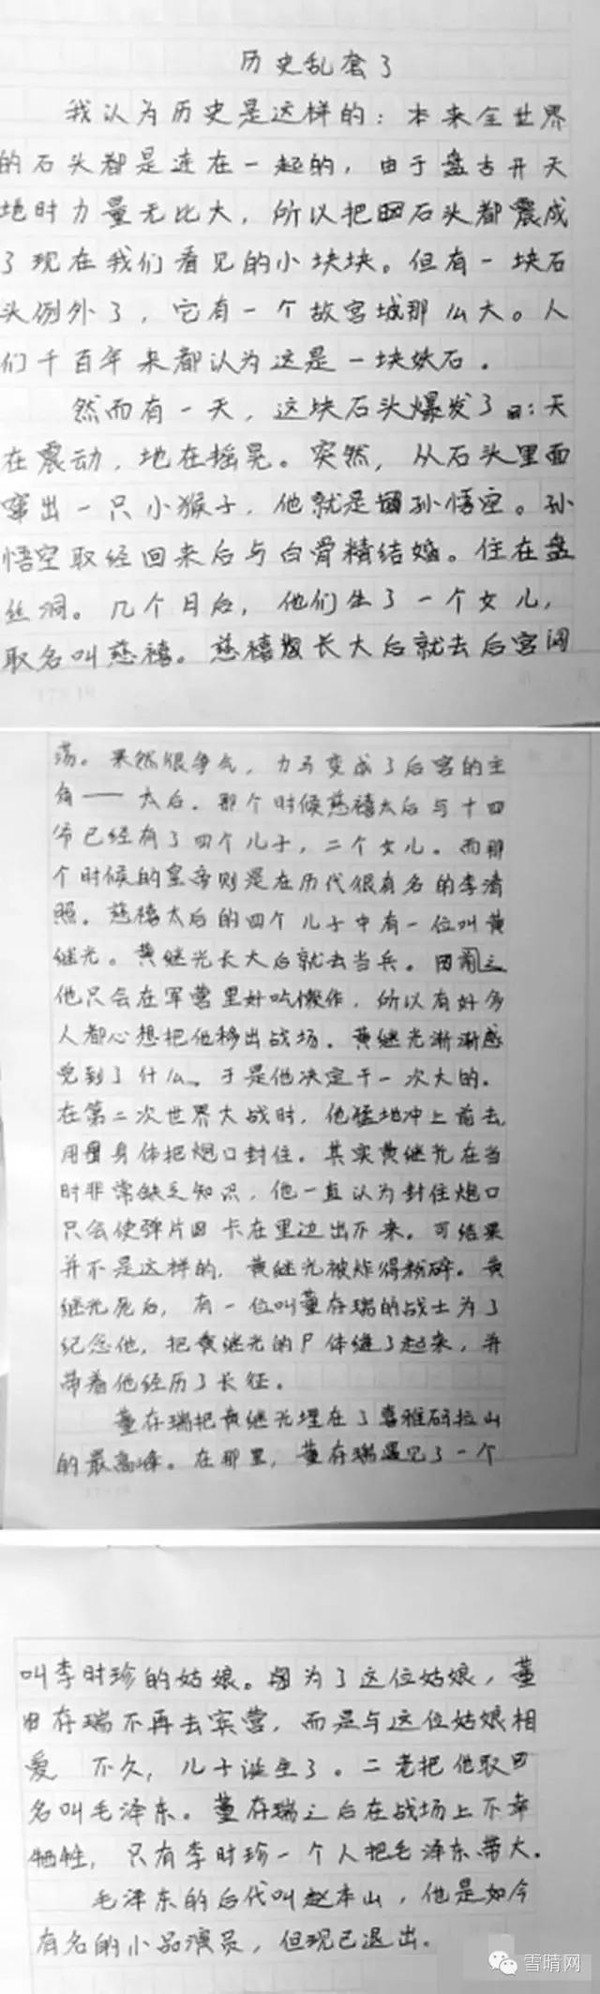 历史乱套了
我认为历史是这样的：本来全世界
的石头都是连在一起的，由于盘古开天
地时力量无比大，所以把石头都震成
了现在我们看见的小块块。但有一块石
头例外了，它有一个故宫城那么大。人
们千百年来都认为这是一块妖石。
然而有一天，这块石头爆发了：天
在震动，地在摇晃。突然，从石头里面
窜出一只小猴子，他就是孙悟空。孙
悟空取经回来后与白骨精结婚。住在盘
丝洞。几个月后，他们生了一个女儿，
取名叫慈禧。慈禧长大后就去后宫闯
荡。果然很争气，力马变成了后宫的主
角——太后。那个时候慈禧太后与十四
爷已经有了四个儿子，二个女儿。而那
个时候的皇帝则是在历代很有名的李清
照。慈禧太后的四个儿子中有一位叫黄
继光。黄继光长大后就去当兵。
他只会在军营里好吃懒作，所以有好多
人都心想把他移出战场。黄继光渐渐感
觉到了什么。于是他决定干一次大的。
在第二次世界大战时，他猛地冲上前去
用身体把炮口封住。其实黄继光在当
时非常缺乏知识，他一直认为封住炮口
只会使弹片卡在里边出不来。可结果
并不是这样的，黄继光被炸得粉碎。黄
继光死后，有一位叫董存瑞的战士为了
纪念他，把黄继光的尸体缝了起来，并
带着他经历了长征。
董存瑞把黄继光埋在了喜雅碍拉山
的最高峰。在那里，董存瑞遇见了一个
叫李时珍的姑娘。因为了这位姑娘，董
存瑞不再去宾营，而是与这位姑娘相
爱 不久，儿子诞生了。二老把他取
名叫毛泽东。董存瑞之后在战场上不幸
牺牲，只有李时珍一个人把毛泽东带大。
毛泽东的后代叫赵本山，他是如今
有名的小品演员，但现已退出。
雪晴网